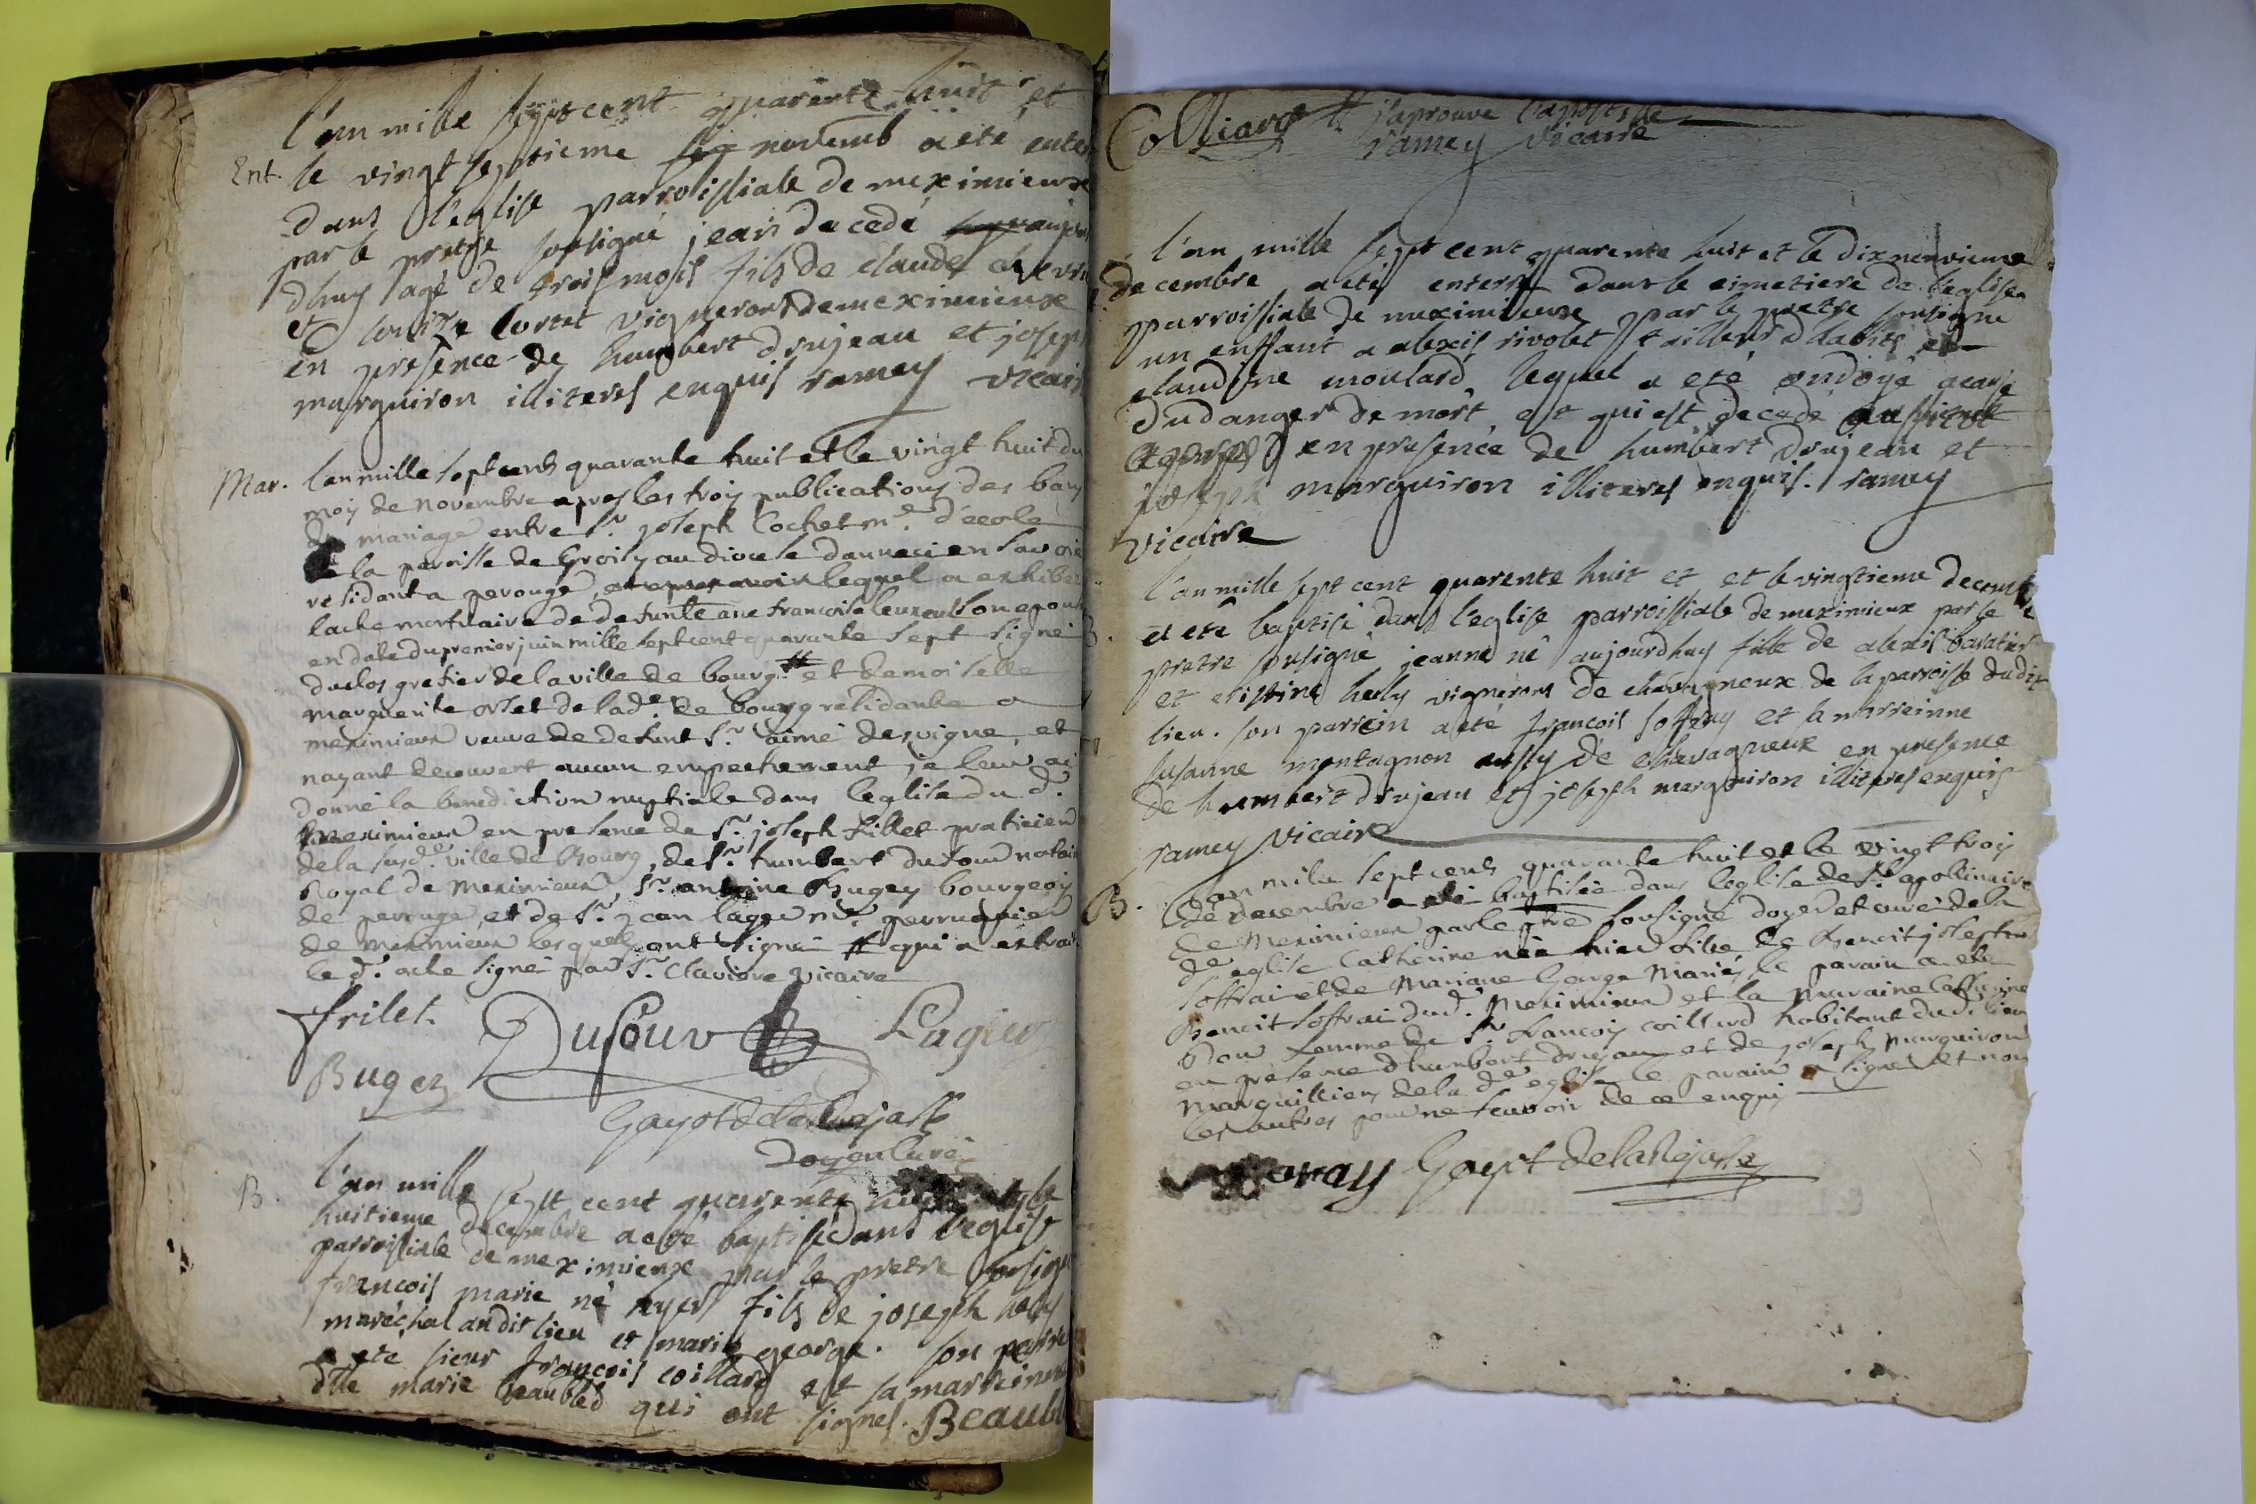 l'an mille sept cent quarente huit et
Ent. le vingt septieme novemb a eté enter
dans l'eglise parroissiale de meximieux
par le pretre sousigné jean decedé aujour
dhuy agé de trois mois fils de claude
et louize cortet vigneron de meximieux
en presence de humbert drujeau et joseph
marguiron illiteres enquis ramey vicair
Mar. lan mille sept cents quarante huit et le vingt huit du
mois de novembre apres les trois publications des bans
de mariage entre Sr joseph Cochet me d'ecole
de la paroisse de Groisy au diocese danneci en savoie
residant a perouge, lequel a exhibé
lacte mortuaire de defunte francoise son epouse
en date du premier juin mille sept cent quarante sept signé
duclos grefier de la ville de bourg # et demoiselle
marguerite orset de lad.e de bourg residante a
meximieux veuve de defunt Sr aimé desvigne, et
nayant decouvert aucun empechement je leur ai
donné la benediction nuptiale dans leglise du d.
meximieux en presence de Sr joseph frillet praticien
de la susd.e ville de Bourg, de Sr humbert dufour notaire
Royal de meximieux, Sr antoine Bugey bourgeois
de perouge, et de Sr jean lager me perruquier
de meximieux lesquels ont signé # qui a extrait
le d. acte signé par Sr Claviere vicaire
frilet. Dufour Lagier
Bugey
Gayot de la
Doyen curé
B. l'an mille sept cent quarente le
huitieme decembre a eté baptisé dans l'eglise
parroissiale de meximieux par le pretre sousigné
francois marie né hyers fils de joseph
maréchal au dit lieu et marie george. son parre
a eté sieur francois coillard et sa marreinne
dlle marie beaubled qui ont signés. Beaubl
Colliard # j'aprouve l'apostille
ramey vicaire
l'an mille sept cent quarente huit et le dixneuvieme
decembre a eté enterré dans le cimetiere de l'eglise
parroissiale de meximieux par le pretre sousigné
un enffant a alexis rivolet tailleur d'habits et
claudine moulard, lequel a eté ondoyé a cause
du danger de mort et qui est decedé
en presence de humbert drujeau et
joseph marguiron illiteres enquis. ramey
vicaire
l'an mille sept cent quarente huit et et le vingtieme decembre
B. a eté baptisé dans l'eglise parroissiale de meximieux par le
pretre sousigné jeanne né aujourdhuy fille de alexis baratier
et cristine vignerons de chavagneux de la parroisse dudit
lieu. son parrein a eté francois soffray et la marreinne
susanne montagnon aussy de chavagneux en presence
de humbert drujeau et joseph marguiron illiteres enquis
ramey vicaire
B. l'an mille sept cents quarante huit et le vingt trois
de decembre a eté baptisée dans leglise de St apolinaire
de meximieux par le ptre sousigné doyen et curé de la
de eglise Catherine née hier fille de Benoit joseph
soffrai et de Mariane George mariés le parain a eté
Benoit soffrai dud. Meximieux et la maraine
femme de Sr francois coillard habitant dud. lieu
en presence d'humbert drujeau et de joseph marguiron
marguilliers de la de eglise le parain a signé et non
les autres pour ne scavoir de ce enquis
Gayot de la